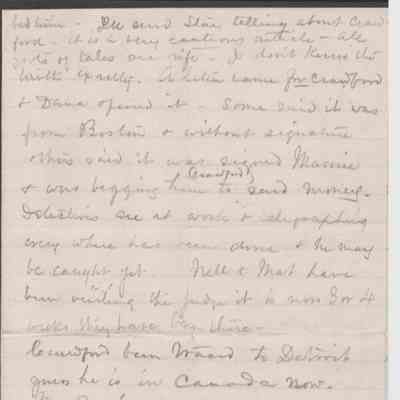 him - I'll send Star telling about Craw
ford - it is a very cautious article - all
sorts of tales are rife - I don't know the
truth exactly. A letter came for Crawford
& Dana opened it - Some said it was
from Boston & without signature
others said it was signed
(Crawford)
& was begging him to send money.
Detectives are at work & telegraphing
every where has been done & he may
be caught yet. Nell & Mat have
been visiting the judge it is now 3 or 4
weeks they have been there -
Crawford been to Detroit
guess he is in Canada now.